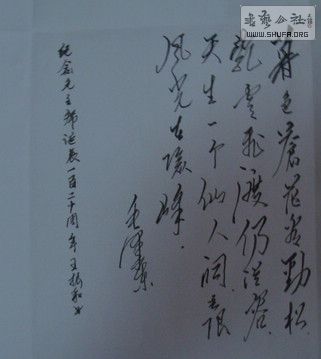 暮色苍茫看劲松
乱云飞渡仍从容
天生一个仙人洞 无限
风光在险峰.
毛泽东
纪念毛主席诞辰一百二十周年 王振和书
書藝公社
WWW.SHUFA.ORG